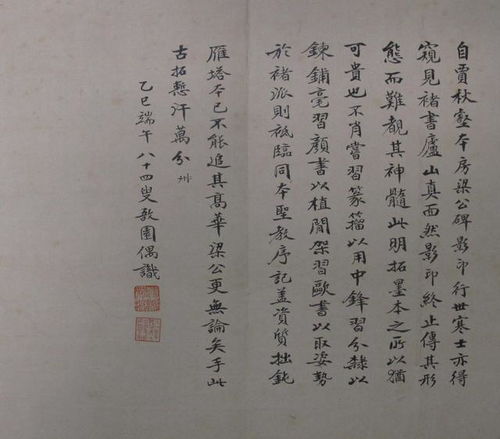 自賈秋壑本房梁公碑影印行世寒士亦得
窺見褚書廬山真面然影印終止傳其形
態而難覩其神髓此明拓墨本之所以猶
可貴也不肖嘗習篆籀以用中鋒習分隸以
鍊鋪毫習顏書以植間架習歐書以取姿勢
於褚派則祗臨同本聖教序記盖資質拙鈍
雁塔本已不能追其髙華梁公更無論矣手此
古拓慙汗萬分
乙巳端午八十四叟敦園偶識